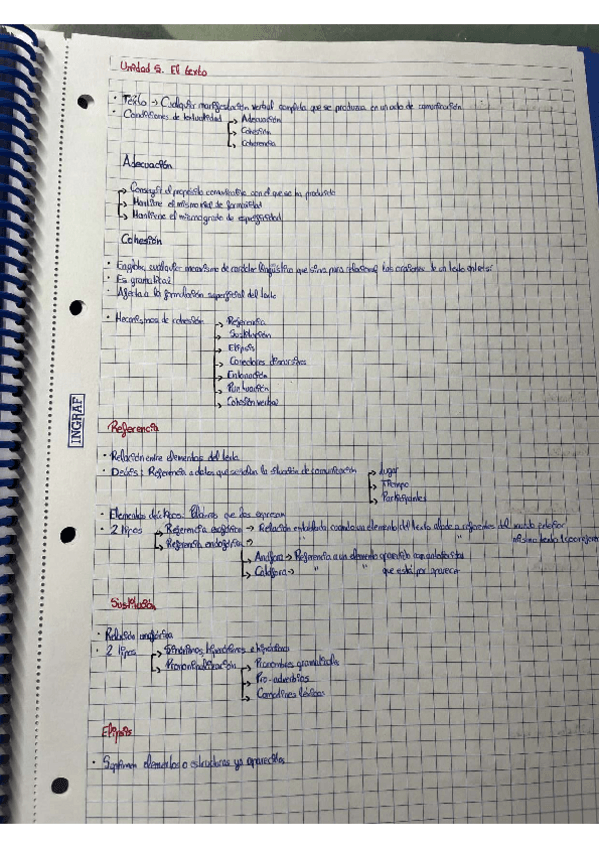 Unidad 5. El texto
· Texto → Cualquier manifestación verbal completa que se produzca en un acto de comunicación
· Condiciones de textualidad → Adecuación
→ Cohesión
→ Coherencia
Adecuación
→ Conseguir el propósito comunicativo con el que se ha producido
→ Mantiene el mismo nivel de formalidad
→ Mantiene el mismo grado de especificidad
Cohesión
· Engloba cualquier mecanismo de carácter lingüístico que sirva para relacionar las oraciones de un texto entre sí
· Es gramatical
· Afecta a la formulación superficial del texto
· Mecanismos de cohesión → Referencia
→ Sustitución
→ Elipsis
→ Conectores discursivos
→ Entonación
→ Puntuación
→ Cohesión verbal
INGRAF
Referencia
· Relación entre elementos del texto
· Deixis: Referencia a datos que señalan la situación de comunicación → Lugar
→ Tiempo
→ Participantes
· Elementos deícticos: Palabras que las expresan
· 2 tipos → Referencia exofórica → Relación establecida cuando un elemento del texto alude a referentes del mundo exterior
→ Referencia endofórica → " " al mismo texto
→ Anáfora → Referencia a un elemento aparecido con anterioridad
→ Catáfora → " " que está por aparecer
Sustitución
· Relación anafórica
· 2 tipos → Sinónimos, hiperónimos e hipónimos
→ Pronominalización → Pronombres gramaticales
→ Pro-adverbios
→ Comodines léxicos
Elipsis
· Suprimen elementos o estructuras ya aparecidos